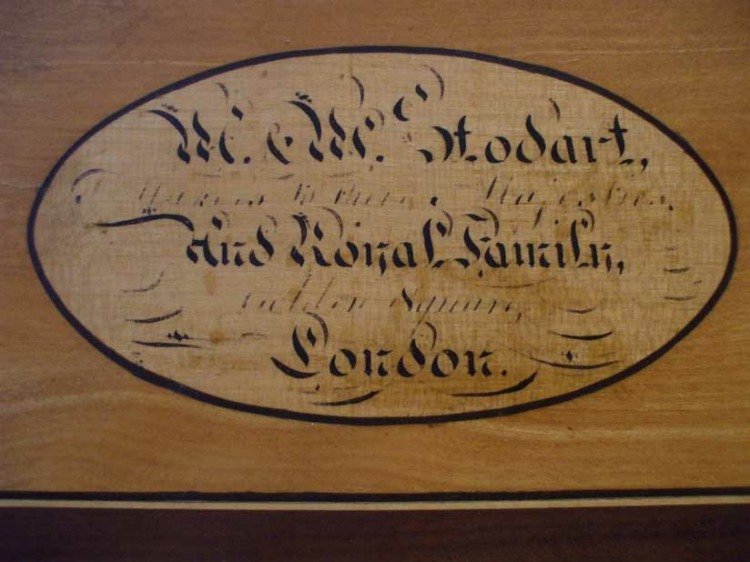 M. & W. Stodart,
Makers to their Majesties,
And Royal Family,
Golden Square,
London.